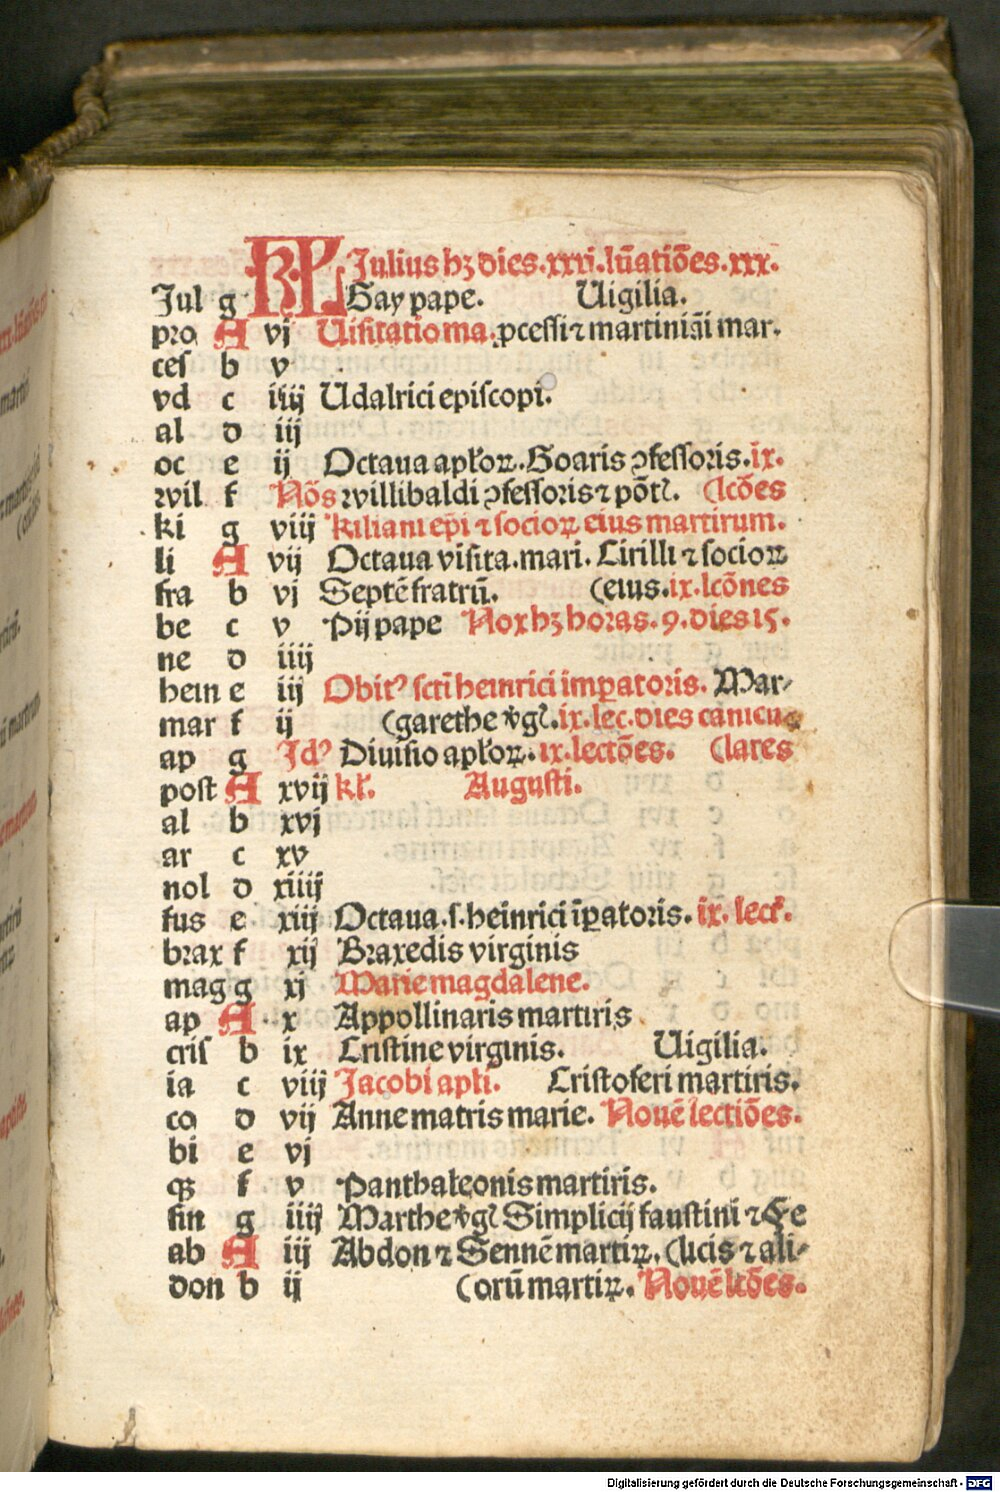 KL Julius hꝫ dies.xxxi.lūatiōes.xxx.
Jul g Gay pape. Uigilia.
pro A vj Uisitatio ma. ꝓcessi ⁊ martiniāi mar.
ces b v
vd c iiij Udalrici episcopi.
al d iij
oc e ij Octaua apłoꝝ. Goaris ꝯfessoris. ix.
wil f Nōs willibaldi ꝯfessoris ⁊ pōtł. (lcōes
ki g viij kiliani ep̄i ⁊ socioꝝ eius martirum.
li A vij Octaua visita. mari. Cirilli ⁊ socioꝝ
fra b vj Septē fratrū. (eius. ix. lcōnes
be c v Pij pape Nox hꝫ horas. 9. dies 15.
ne d iiij
hein e iij Obitꝰ sct̄i heinrici imꝑatoris. Mar⸗
mar f ij (garethe v̄gl. ix. lec. dies canicu⸗
ap g Jdꝰ Diuisio apłoꝝ. ix. lectōes. (lares
post A xvij kł. Augusti.
al b xvj
ar c xv
nol d xiiij
fus e xiij Octaua. s. heinrici īꝑatoris. ix. lect̄.
brax f xij Braxedis virginis
mag g xj Marie magdalene.
ap A x Appollinaris martiris
cris b ix Cristine virginis. Uigilia.
ia c viij Jacobi apłi. Cristoferi martiris.
co d vij Anne matris marie. Nouē lectiōes.
bi e vj
qꝫ f v Panthaleonis martiris.
sin g iiij Marthe v̄gl Simplicij faustini ⁊ Fe
ab A iij Abdon ⁊ Sennē martiꝝ. (licis ⁊ ali⸗
don b ij (orū martiꝝ. Nouē lcōes.
Digitalisierung gefördert durch die Deutsche Forschungsgemeinschaft - DFG